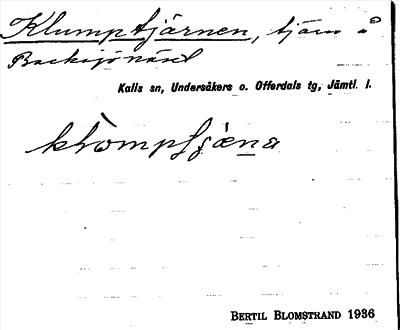 Klumptjärnen, tjärn å
Backsjönäset
Kalls sn, Undersåkers o. Offerdals tg, Jämtl. l.
BERTIL BLOMSTRAND 1936